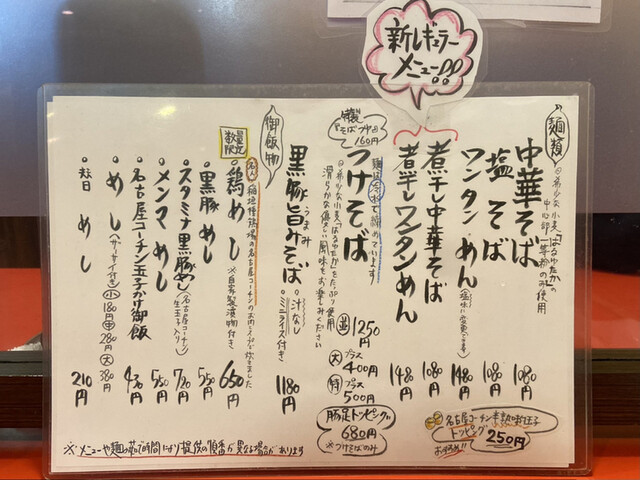 新レギュラー
メニュー!!
麺類
◎希少な小麦「はるゆたか」の
中心部一等粉のみ使用
中華そば 1080円
塩そば 1080円
ワンタンめん 1480円
(塩味に変更できます)
煮干し中華そば 1080円
煮干しワンタンめん 1480円
麺は冷水で〆めています
つけそば
160円
◎希少な小麦「はるゆたか」をたっぷり使用
滑らかな優しい風味をお楽しみください
並 1250円
大 プラス400円
特 プラス500円
黒豚旨みそば 1180円
うまみ
・汁なし
・ミニライス付き
豚足トッピング
680円
※つけそばのみ
名古屋コーチン半熟味付玉子
トッピング 250円
お得!!
御飯物
数量限定
・鶏めし 650円
※自家製漬物付き
・黒豚めし 550円
・スタミナ黒豚めし 720円
(名古屋コーチン生玉子入り)
・メンマめし 550円
・名古屋コーチン玉子かけ御飯 430円
・めし
小180円 中280円 大380円
・めし 210円
※メニューや麺の茹で時間により提供の順番が異なる場合があります